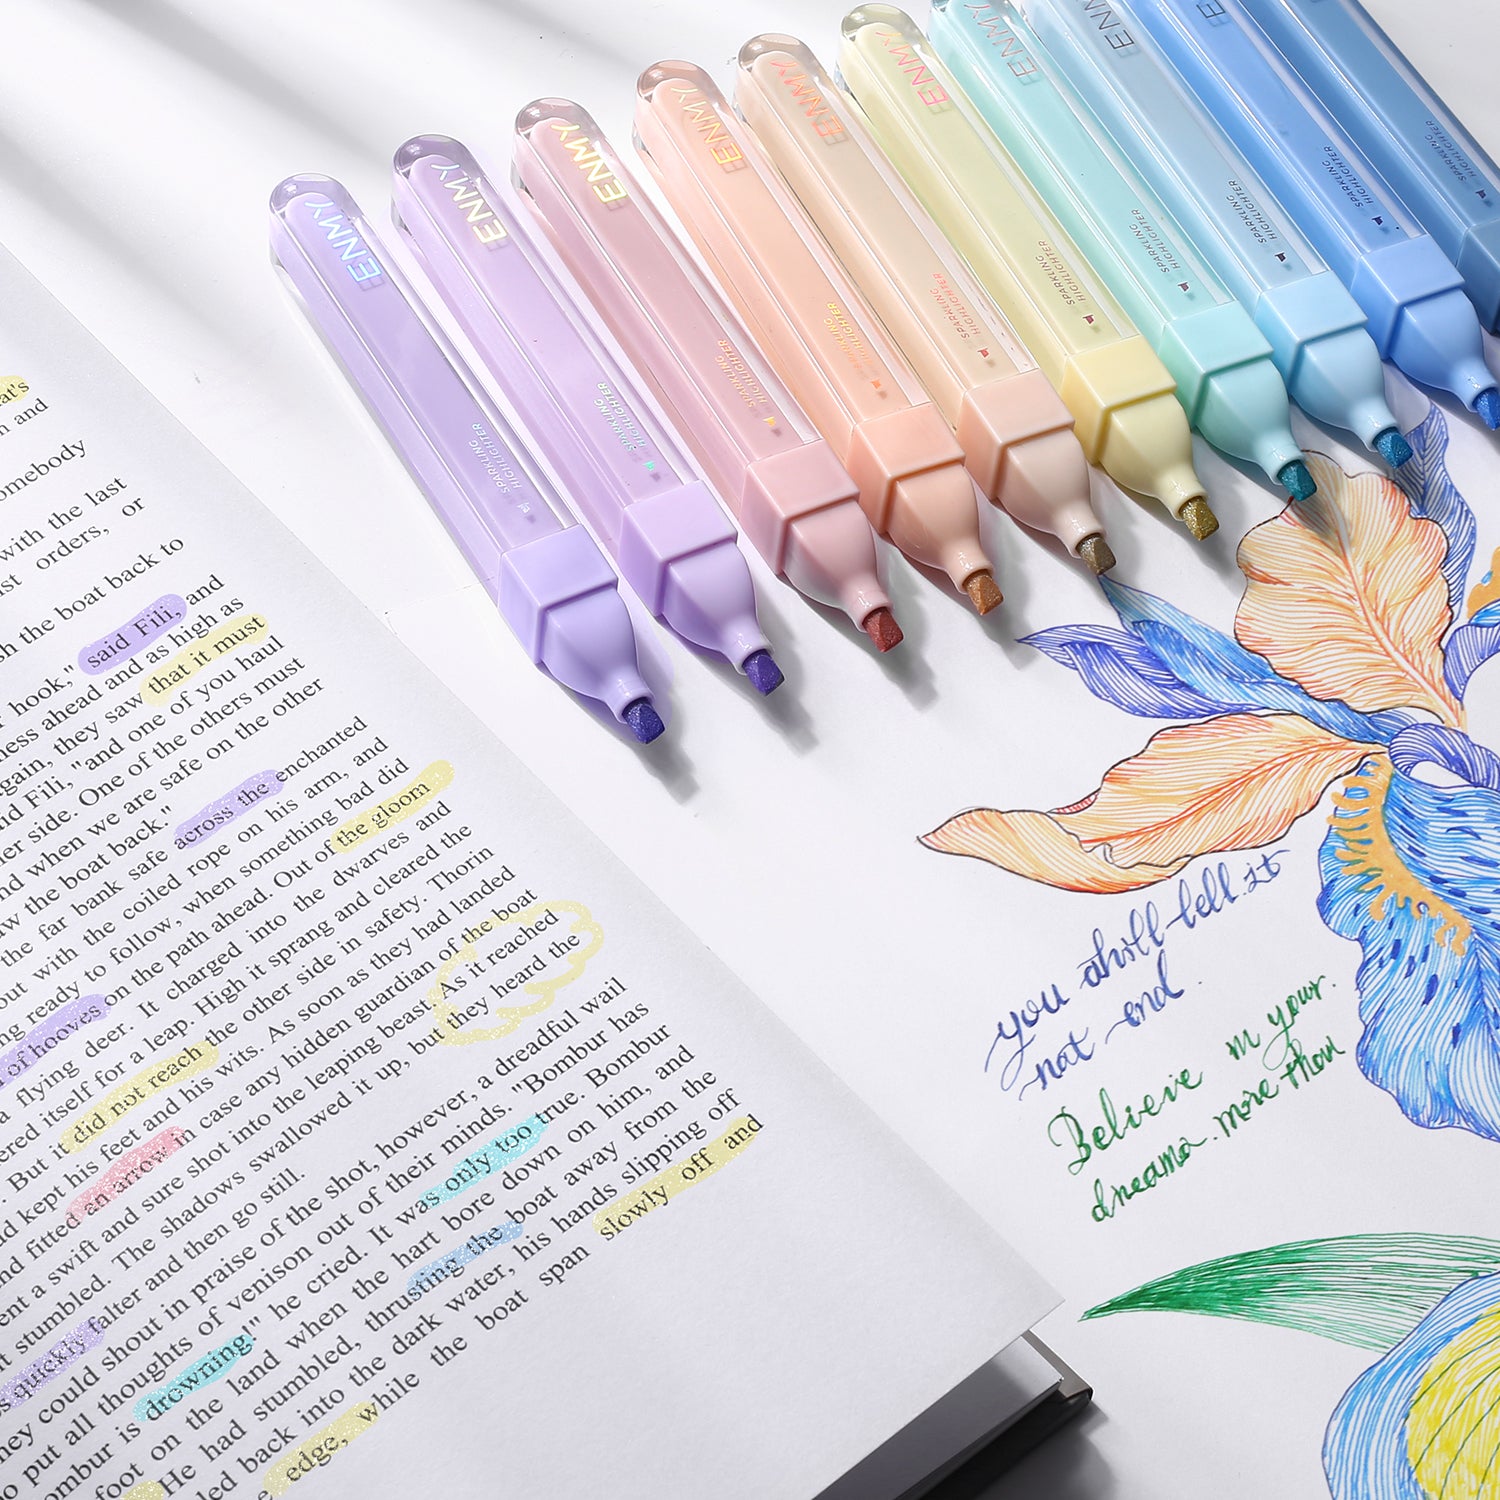 ENMY
SPARKLING
HIGHLIGHTER
ENMY
SPARKLING
HIGHLIGHTER
ENMY
SPARKLING
HIGHLIGHTER
ENMY
SPARKLING
HIGHLIGHTER
ENMY
SPARKLING
HIGHLIGHTER
ENMY
SPARKLING
HIGHLIGHTER
ENMY
SPARKLING
HIGHLIGHTER
ENMY
SPARKLING
HIGHLIGHTER
SPARKLING
HIGHLIGHTER
SPARKLING
HIGHLIGHTER
and
omebody
with the last
orders, or
the boat back to
hook," said Fili, and
ness ahead and as high as
they saw that it must
Fili, "and one of you haul
side. One of the others must
when we are safe on the other
the boat back."
the far bank safe across the enchanted
with the coiled rope on his arm, and
ready to follow, when something bad did
of hooves on the path ahead. Out of the gloom
a flying deer. It charged into the dwarves and
itself for a leap. High it sprang and cleared the
But it did not reach the other side in safety. Thorin
kept his feet and his wits. As soon as they had landed
fitted an arrow in case any hidden guardian of the boat
a swift and sure shot into the leaping beast. As it reached
stumbled. The shadows swallowed it up, but they heard the
quickly falter and then go still.
they could shout in praise of the shot, however, a dreadful wail
put all thoughts of venison out of their minds. "Bombur has
ombur is drowning!" he cried. It was only too true. Bombur
foot on the land when the hart bore down on him, and
He had stumbled, thrusting the boat away from the
back into the dark water, his hands slipping off
edge, while the boat span slowly off and
you aholl-bell.it
not end.
Believe in your.
dreama. more thou